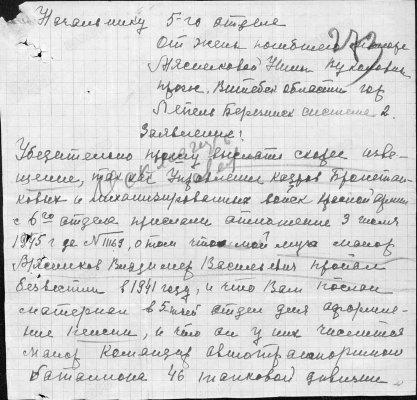 Начальнику 5-го отдела
От жены погибшего
Мясниковой Нины
прож. Витебской области гор
Лепель Березинск система 2.
Заявление:
Убедительно прошу выслать скорее изве-
щение, так как Управления кадров Бронетан-
ковых и механизированных войск красной армии
с 6го отдела прислали отношение 3 июля
1945 г да N о том что мой муж майор
Мясников Владимир Васильевич пропал
безвестии в 1941 году, и что Вам послан
материал в 5-ный отдел для оформле-
ние пенсии, и что он у них числется
майор командир автотранспортном
батальона 46 танковой дивизии.